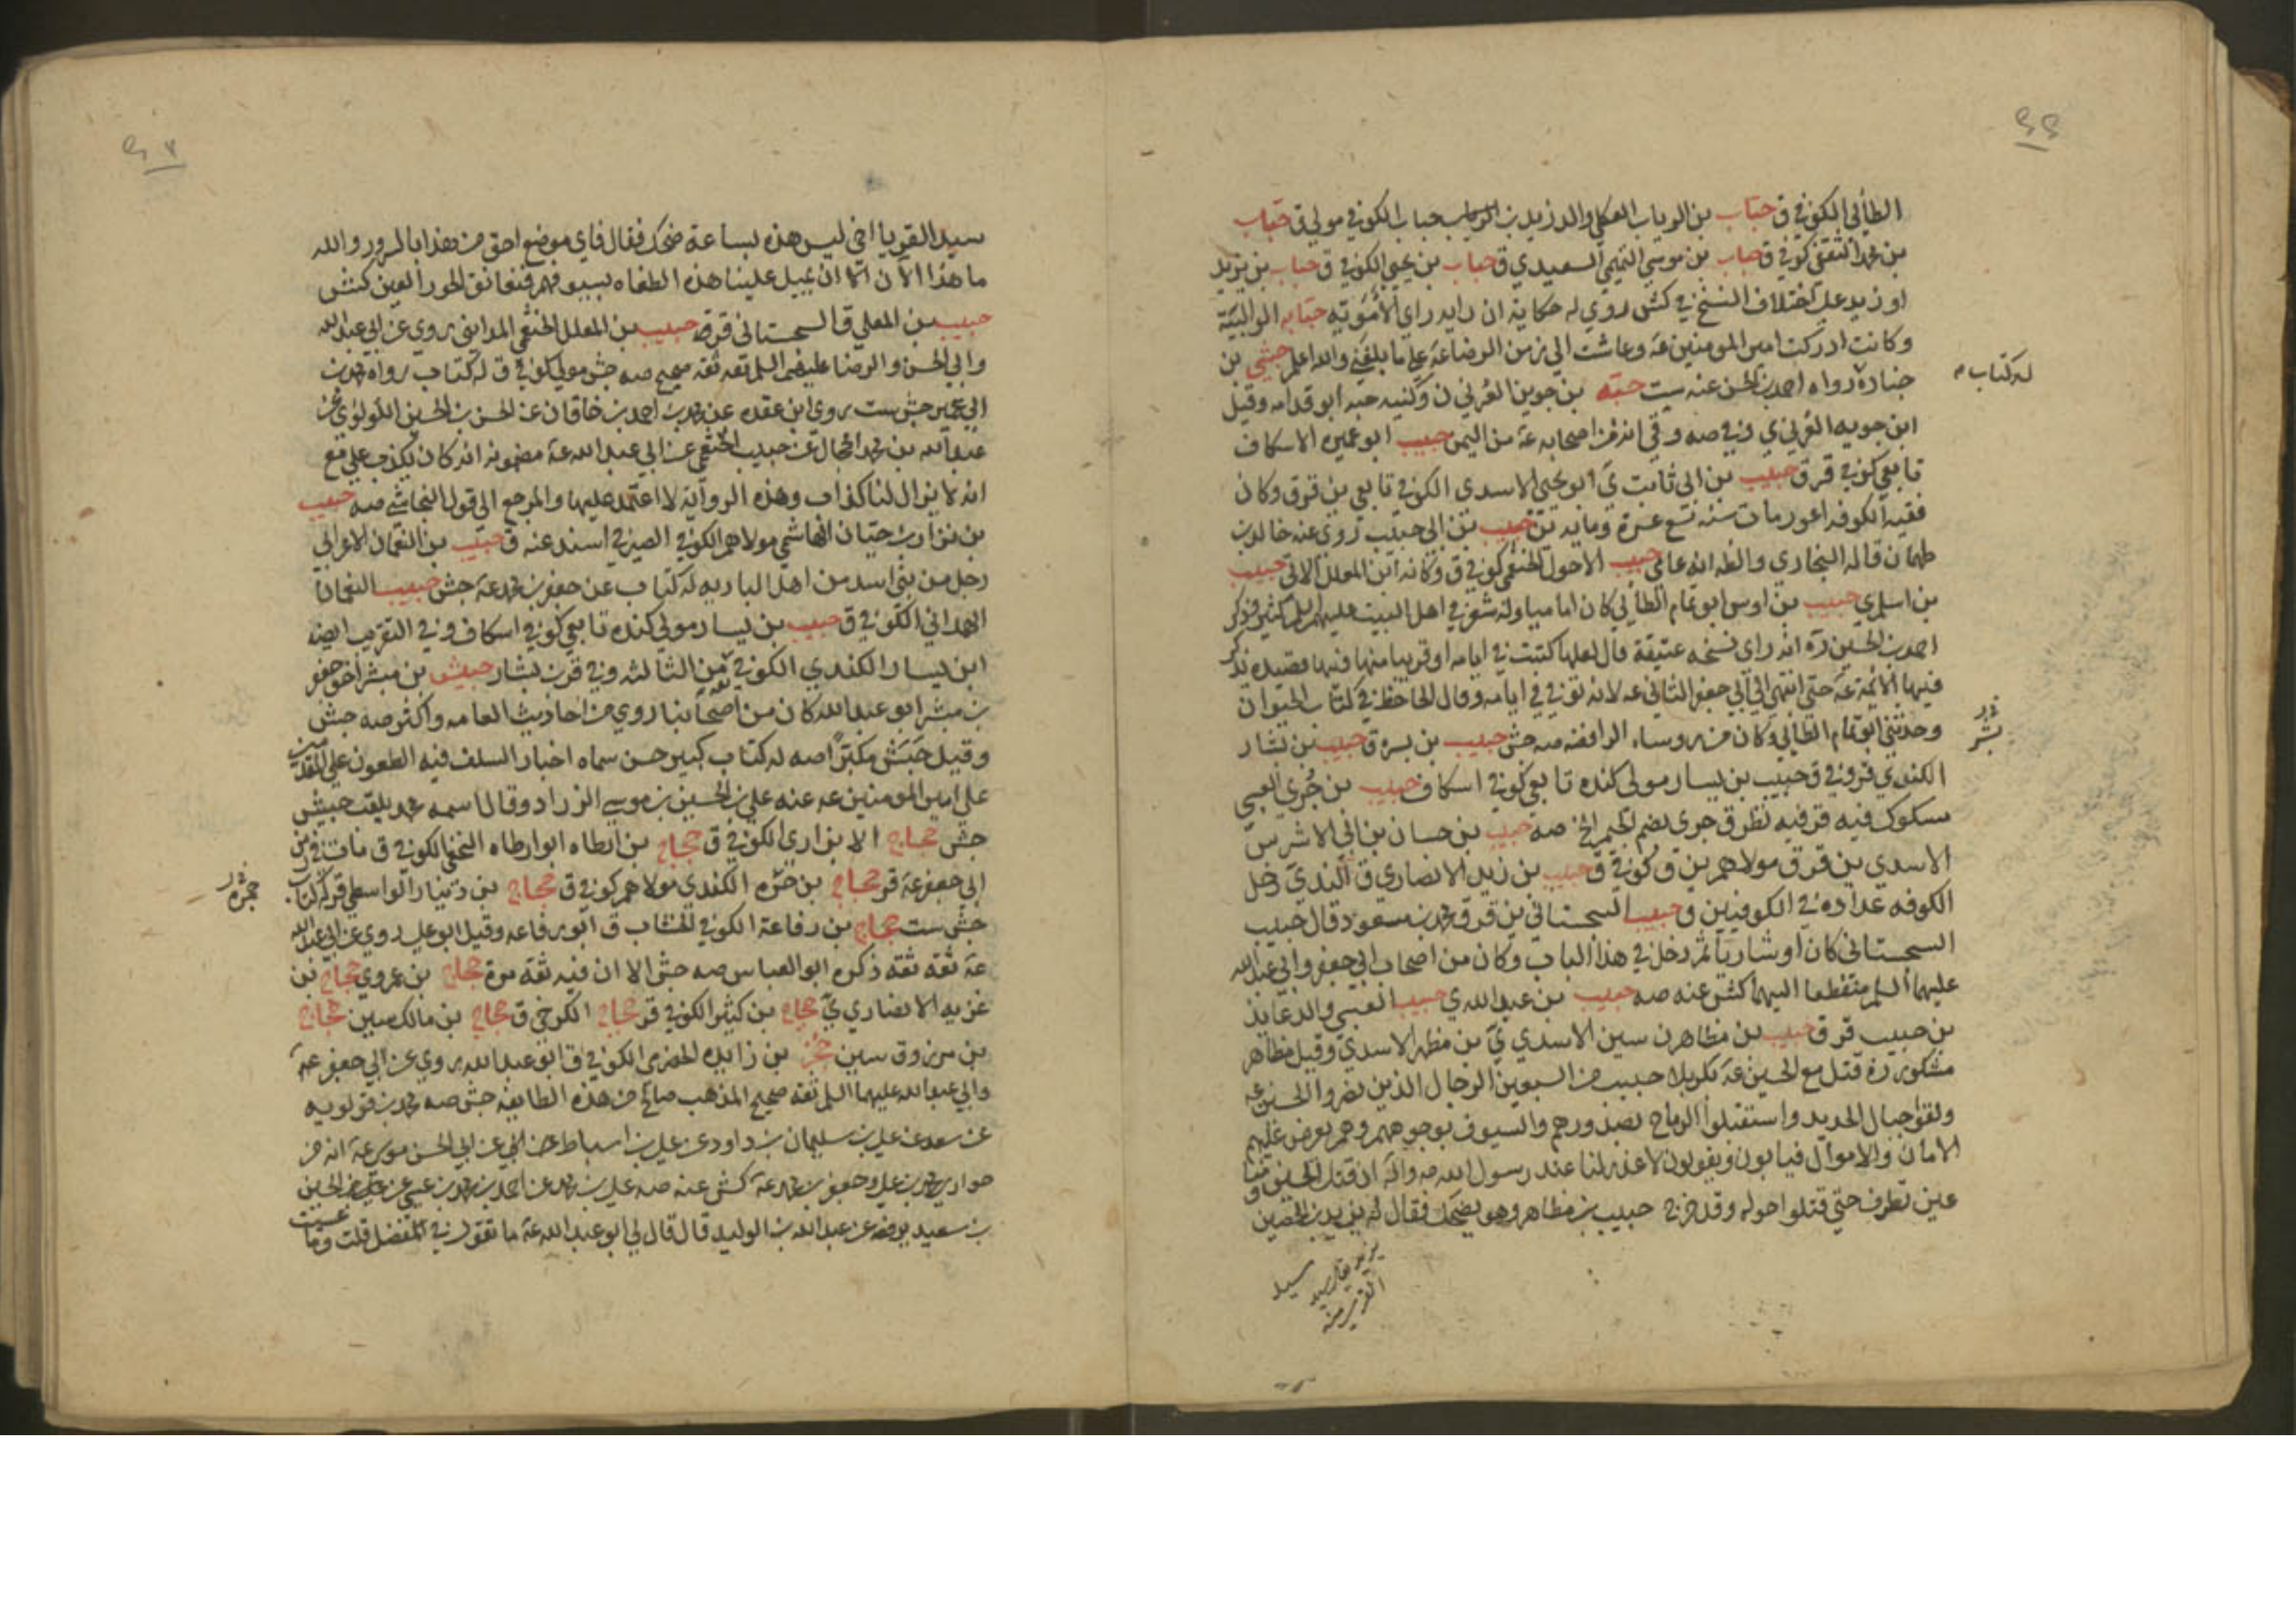 الطائي الكوفي ق حباب بن الرباب العكلي والد زيد بن الرباب حباب الكوفي مولي ق حباب
بن محمد الثقفي كوفي ق حباب بن موسي التميمي السعيدي ق حباب بن يحيي الكوفي ق حباب بن يزيد
او زيد علي اختلاف النسخ في كش روي له حكاية ان رايه راي الاموية حبابه الوالبية
وكانت ادركت امير المومنين عه وعاشت الي زمن الرضا عه علي ما بلغني والله اعلم حبشي بن
جناده رواه احمد بن الحسن عنه ست حبه بن جوين العرني ن وكنيه حبه ابو قدامه وقيل
ابن جويه العرني ي وفي صه وفي انه من اصحابه عه من اليمن حبيب ابو عميره الاسكاف
تابعي كوفي قر ق حبيب بن ابي ثابت ي ابو يحيي الاسدي الكوفي تابعي ين قر ق وكان
فقيه الكوفه اعور مات سنه تسع عشرة ومايه ين حبيب بن ابي حبيب روي عنه خالد بن
طهمان قاله البخاري والظ انه عامي حبيب الاحول الخثعمي كوفي ق وكانه ابن المعلل الاتي حبيب
بن اسلم ي حبيب بن اوس ابو تمام الطائي كان اماميا وله شعر في اهل البيت عليهم السلم كثير وذكر
احمد بن الحسين ره انه راي نسخه عتيقة قال لعلها كتبت في ايامه او قريبا منها فيها قصيده يذكر
فيها الائمة عه حتي انتهي الي ابي جعفر الثاني عه لانه توفي في ايامه وقال الجاحظ في كتاب الحيوان
وحدثني ابو تمام الطائي وكان من روساء الرافضه صه جش حبيب بن بسر ق حبيب بن بشار
الكندي قر وفي ق حبيب بن يسار مولي كنده تابعي كوفي اسكاف حبيب بن جري العبسي
مسكوك فيه قر فيه نظر ق جري بضم الجيم الخ صه حبيب بن حسان بن ابي الاشرس
الاسدي ين قر ق مولاهم ين ق كوفي ق حبيب بن زيد الانصاري ق الندي دخل
الكوفه عداده في الكوفيين ق حبيب السجستاني ين قر ق محمد بن مسعود قال حبيب
السجستاني كان او شاريا ثم دخل في هذا الباب وكان من اصحاب ابي جعفر وابي عبد الله
عليهما السلم منقطعا اليهما كش عنه صه حبيب بن عبد الله ي حبيب العبسي والد عايذ
بن حبيب قر ق حبيب بن مظاهر ن سين الاسدي ي بن مظهر الاسدي وقيل مظاهر
مشكور ره قتل مع الحسين عه بكربلا حبيب من السبعين الرجال الذين نصروا الحسين عه
ولقوا جبال الحديد واستقبلوا الرماح بصدورهم والسيوف بوجوههم وهم يعرض عليهم
الامان والاموال فيابون ويقولون لا عذر لنا عند رسول الله صه واله ان قتل الحسين ومنا
عين تطرف حتي قتلوا حوله وقد خرج حبيب بن مظاهر وهو يضحك فقال له يزيد بن الحصين
سيد
له كتاب م
بشر
سيد القرا يا اخي ليس هذه بساعة ضحك فقال فاي موضع احق من هذا بالسرور والله
ما هذا الا ان الا ان تميل علينا هذه الطغاه بسيوفهم فنعانق الحور العين كش
حبيب بن المعلي ق السجستاني قر ق حبيب بن المعلل الخثعمي المدايني روي عن ابي عبد الله
وابي الحسن والرضا عليهم السلم ثقه ثقه صحيح صه جش مولي كوفي ق له كتاب رواه محمد بن
ابي عمير جش ست روي ابن عقده عن محمد بن احمد بن خاقان عن الحسن بن الحسين اللولوي عن
عبد الله بن محمد الحجال عن حبيب الخثعمي عن ابي عبد الله عه مضمونه انه كان يكذب علي مع
انه لا يزال لنا كذاب وهذه الرواية لا اعتمد عليها والمرجع الي قول النجاشي صه حبيب
بن نزار بن حيان الهاشمي مولاهم الكوفي الصيرفي اسند عنه ق حبيب بن النعمان الاعرابي
رجل من بني اسد من اهل الباديه له كتاب عن جعفر بن محمد عه جش حبيب النعمان
الهمداني الكوفي ق حبيب بن يسار مولي كنده تابعي كوفي اسكاف ق وفي التقريب ايضه
ابن يسار الكندي الكوفي ثقه من الثالثه وفي قر بن بشار حبيش بن مبشر اخو جعفر
بن مبشر ابو عبد الله كان من اصحابنا روي من احاديث العامه واكثر صه جش
وقيل حبش مكبرا صه له كتاب كبير حسن سماه اخبار السلف فيه الطعون علي المتقدمين
علي امير المومنين عه عنه علي بن الحسين بن موسي الزراد وقال اسمه محمد يلقب حبيش
جش حجاج الابزاري الكوفي ق حجاج بن ارطاه ابو ارطاه النخعي الكوفي ق مات في زمن
ابي جعفر عه قر حجاج بن حمزه الكندي مولاهم كوفي ق حجاج بن دينار الواسطي قر له كتاب
جش ست حجاج بن رفاعة الكوفي الخشاب ق ابو رفاعه وقيل ابو علي روي عن ابي عبد الله
عه ثقه ثقه ذكره ابو العباس صه جش الا ان فيه ثقه مرة حجاج بن عمرو ي حجاج بن
غزيه الانصاري ي حجاج بن كثير الكوفي قر حجاج الكرخي ق حجاج بن مالك سين حجاج
بن مرزوق سين حجر بن زايده الحضرمي الكوفي ق ابو عبد الله روي عن ابي جعفر عه
وابي عبد الله عليهما السلم ثقه صحيح المذهب صالح من هذه الطايفه جش صه محمد بن قولويه
عن سعد عن علي بن سليمان بن داود عن علي بن اسباط عن ابيه عن ابي الحسن موسي عه انه من
حواري محمد بن علي وجعفر بن محمد عه كش عنه صه علي بن محمد عن احمد بن محمد بن عيسي عن علي بن الحسين
بن سعيد يرفعه عن عبد الله بن الوليد قال قال لي ابو عبد الله عه ما تقول في المفضل قلت وما عسيت